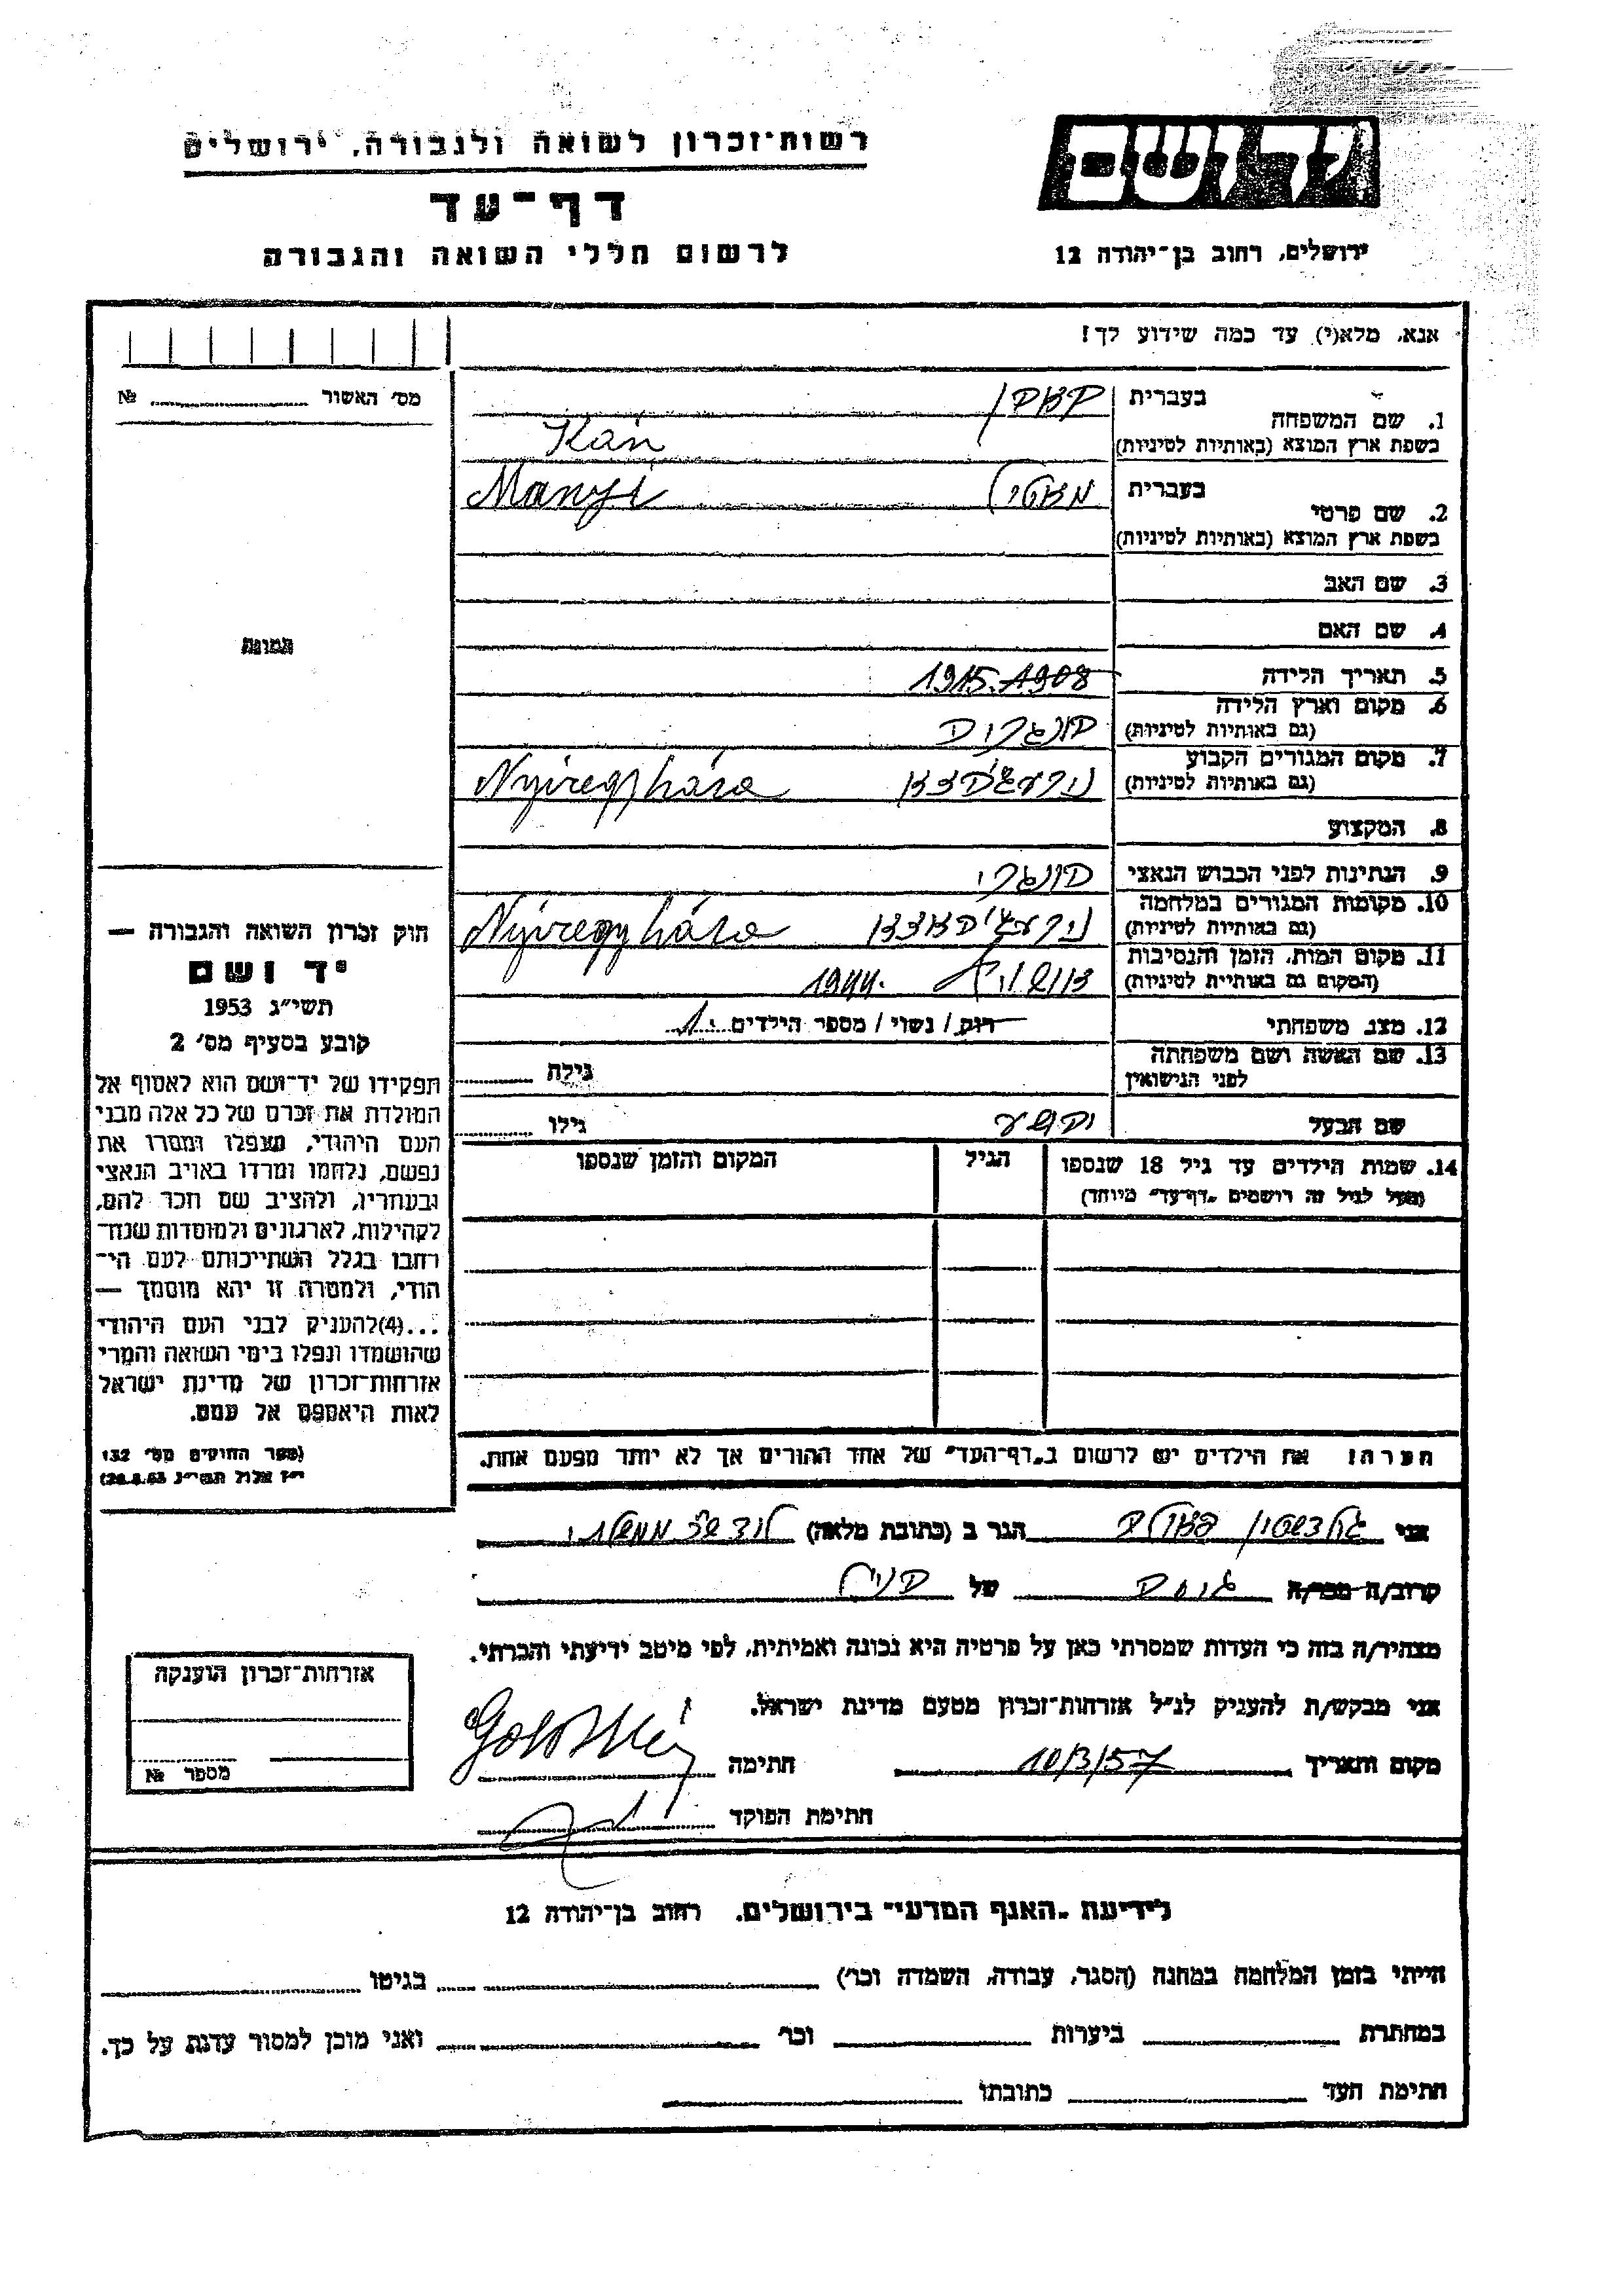 רשות־זכרון לשואה ולגבורה, ירושלים
יד ושם
דף־עד
לרשום חללי השואה והגבורה
ירושלים, רחוב בן־יהודה 12
אנא, מלא(י) עד כמה שידוע לך!
מס׳ האשור №
1. שם המשפחה
בעברית
בשפת ארץ המוצא (באותיות לטיניות) Kán
2. שם פרטי
בעברית Manyi
בשפת ארץ המוצא (באותיות לטיניות)
3. שם האב
4. שם האם
תמונה
5. תאריך הלידה 1908 1915
6. מקום וארץ הלידה
(גם באותיות לטיניות) הונגריה
7. מקום המגורים הקבוע
(גם באותיות לטיניות) Nyiregyháza
8. המקצוע
9. הנתינות לפני הכבוש הנאצי הונגרי
10. מקומות המגורים במלחמה
(גם באותיות לטיניות) Nyiregyháza
11. מקום המות, הזמן והנסיבות
(המקום גם באותיות לטיניות) 1944
12. מצב משפחתי רוק / נשוי / מספר הילדים 1
13. שם האשה ושם משפחתה
לפני הנישואין גילה
שם הבעל גילו
חוק זכרון השואה והגבורה —
יד ושם
תשי״ג 1953
קובע בסעיף מס׳ 2
תפקידו של יד־ושם הוא לאסוף אל
המולדת את זכרם של כל אלה מבני
העם היהודי, שנפלו ומסרו את
נפשם, נלחמו ומרדו באויב הנאצי
ובעוזריו, ולהציב שם וזכר להם,
לקהילות, לארגונים ולמוסדות שנח־
רבו בגלל השתייכותם לעם הי־
הודי, ולמטרה זו יהא מוסמך —
...(4) להעניק לבני העם היהודי
שהושמדו ונפלו בימי השואה והמרי
אזרחות־זכרון של מדינת ישראל
לאות היאספם אל עמם.
(ספר החוקים מס׳ 132
י״ז אלול תשי״ג 28.8.53)
14. שמות הילדים עד גיל 18 שנספו הגיל המקום והזמן שנספו
(מעל לגיל זה רושמים „דף־עד״ מיוחד)
הערה: את הילדים יש לרשום ב„דף־העד״ של אחד ההורים אך לא יותר מפעם אחת.
אני גולדשטין הגר ב (כתובת מלאה)
קרוב/ה מכר/ה של
מצהיר/ה בזה כי העדות שמסרתי כאן על פרטיה היא נכונה ואמיתית, לפי מיטב ידיעתי והכרתי.
אני מבקש/ת להעניק לנ״ל אזרחות־זכרון מטעם מדינת ישראל.
מקום ותאריך 10/3/57 חתימה
חתימת הפוקד
אזרחות־זכרון הוענקה
מספר №
לידיעת „האגף המדעי״ בירושלים, רחוב בן־יהודה 12
הייתי בזמן המלחמה במחנה (הסגר, עבודה, השמדה וכו׳) בגיטו
במחתרת ביערות וכו׳ ואני מוכן למסור עדות על כך.
חתימת העד כתובתו